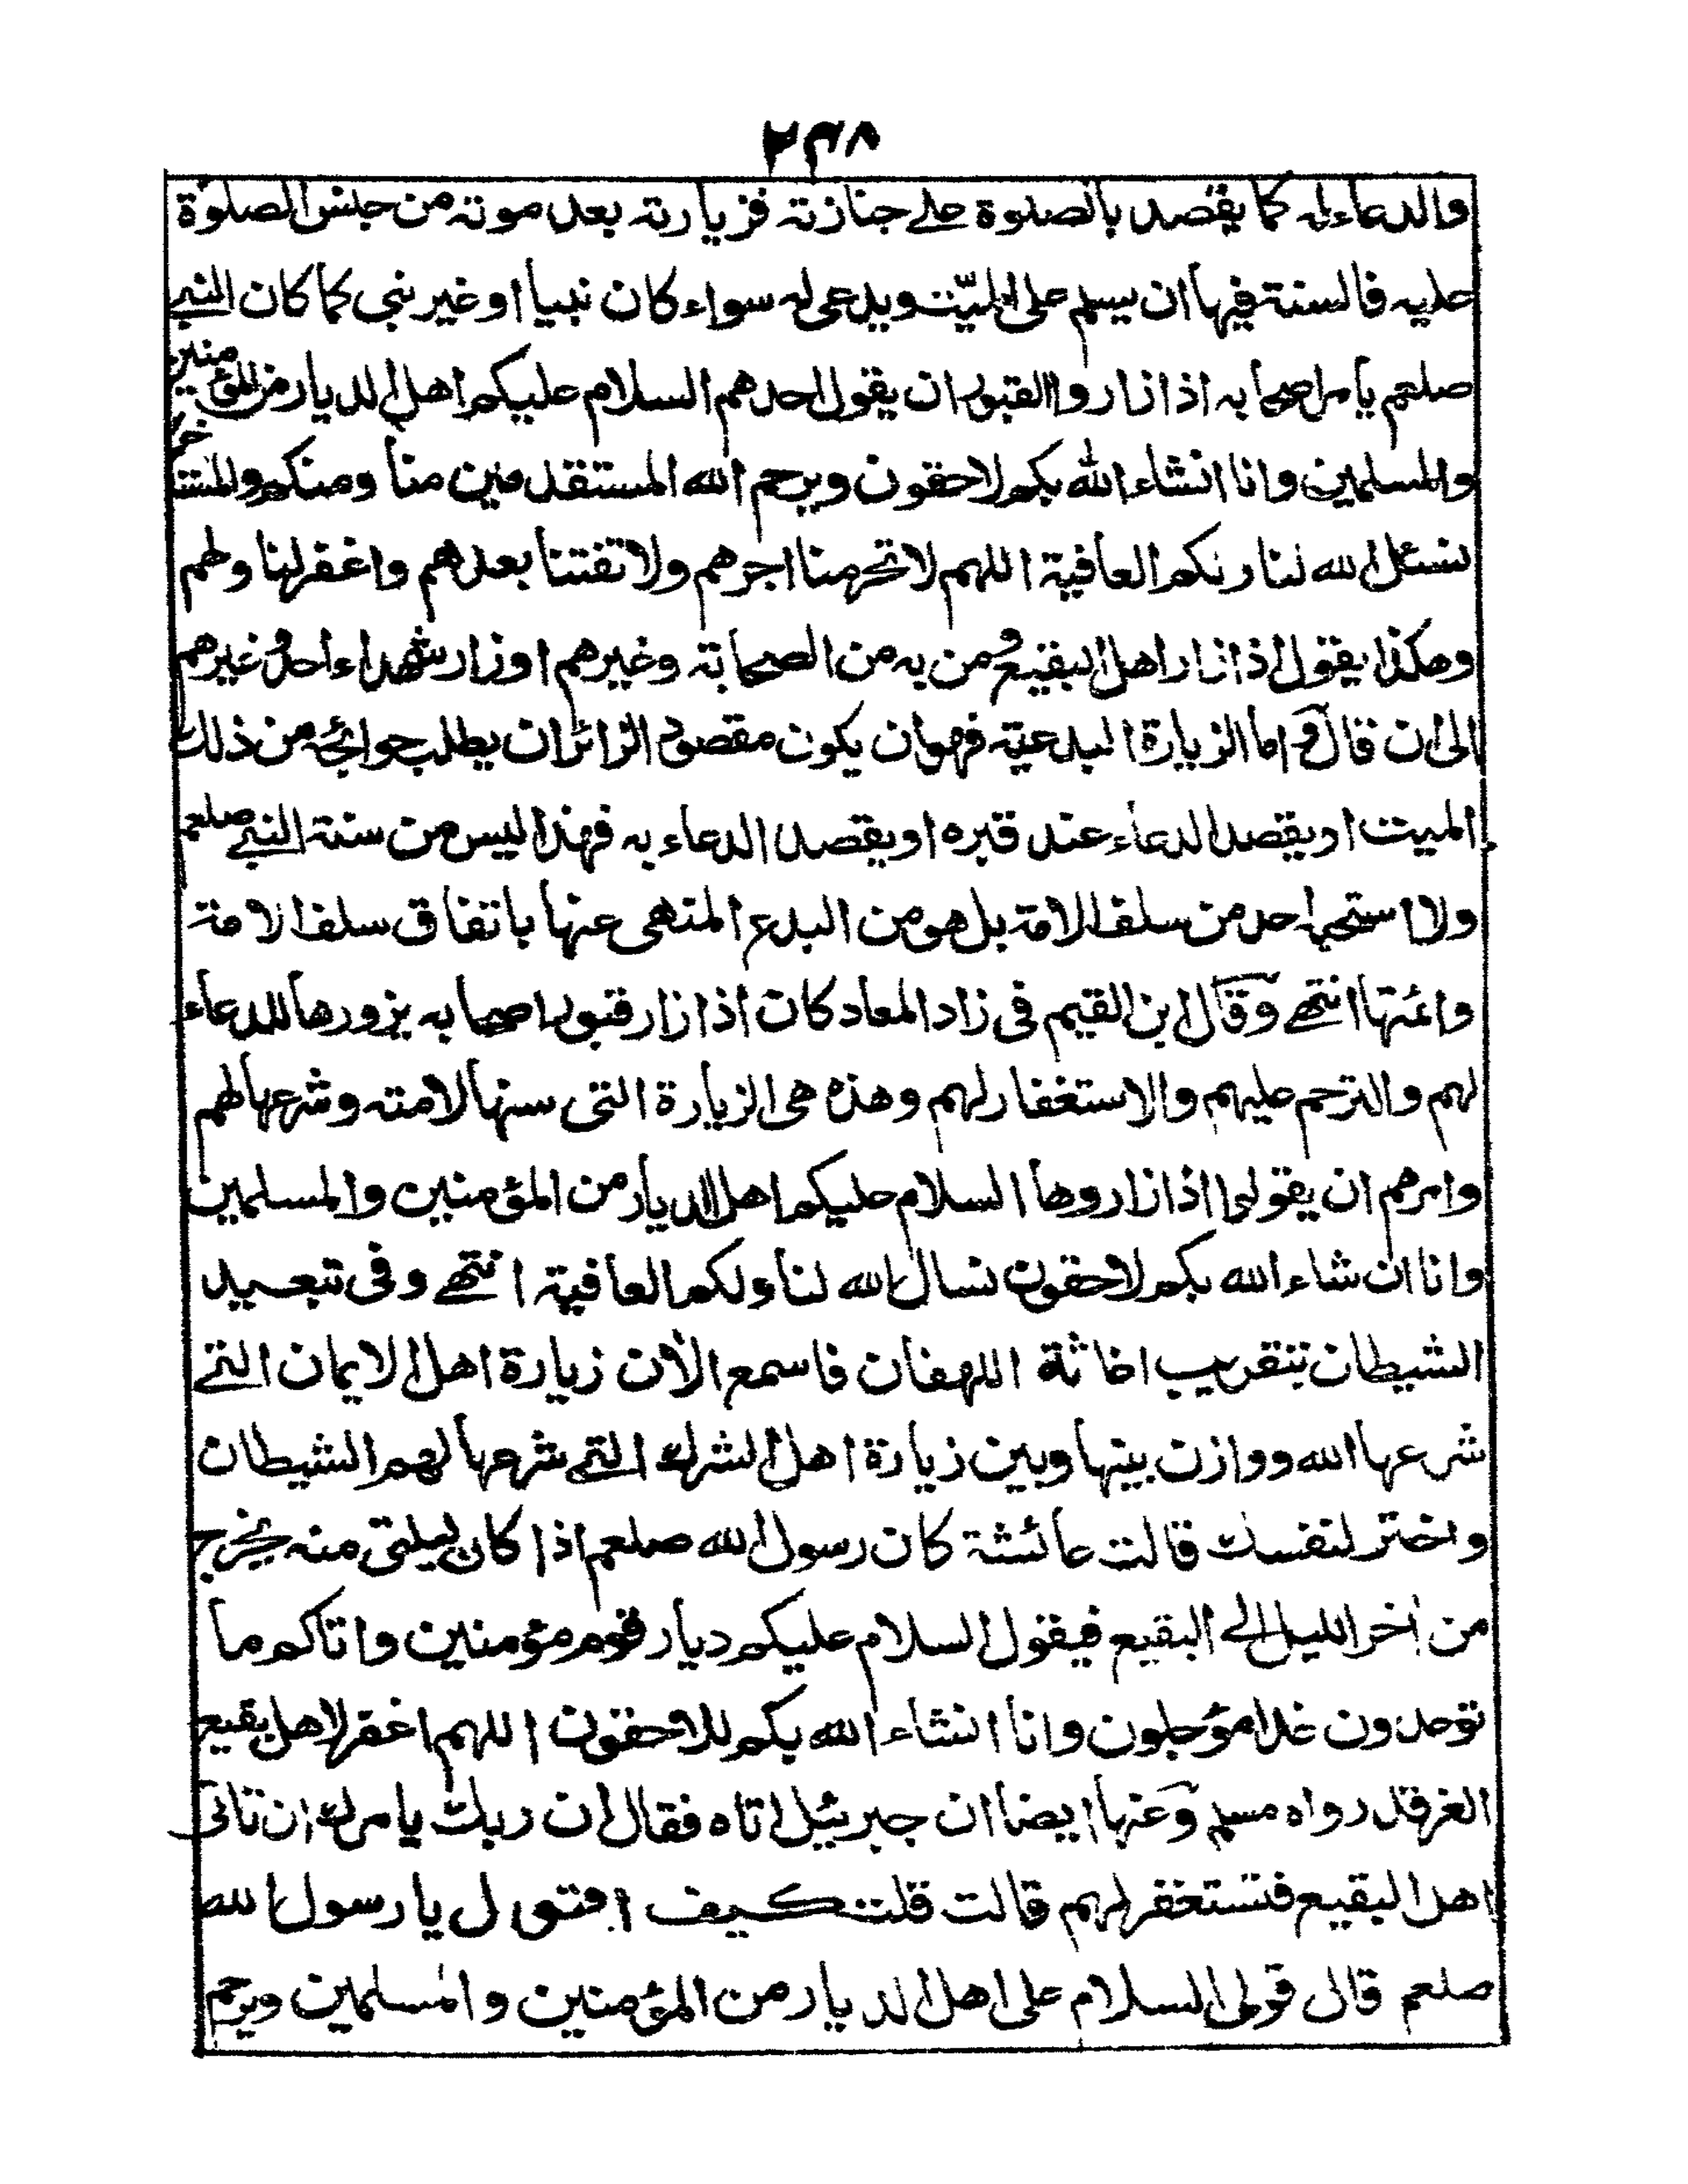 ۲۳۸
والدعاء له كما يقصد بالصلوة على جنازته فزيارته بعد موته من جنس الصلوة
عليه فالسنة فيها ان يسلم على الميّت ويدعى له سواء كان نبيا او غير نبى كما كان النبي
صلعم يأمر اصحابه اذا زاروا القبور ان يقول احدهم السلام عليكم اهل الديار من المؤمنين
والمسلمين وانا انشاء الله بكم لاحقون ويرحم الله المستقدمين منا ومنكم والمستاخرين
نسئل الله لنا ولكم العافية اللهم لا تحرمنا اجرهم ولا تفتنا بعدهم واغفر لنا ولهم
وهكذا يقول اذا زار اهل البقيع ومن به من الصحابة وغيرهم او زار شهداء احد وغيرهم
الى ان قال واما الزيارة البدعية فهو ان يكون مقصود الزائر ان يطلب حوائجه من ذلك
الميت او يقصد الدعاء عند قبره او يقصد الدعاء به فهذا ليس من سنة النبي صلعم
ولا استحبه احد من سلف الامة بل هو من البدع المنهى عنها باتفاق سلف الامة
وائمتها انتهى وقال ابن القيم فى زاد المعاد كان اذا زار قبور اصحابه يزورها للدعاء
لهم والترحم عليهم والاستغفار لهم وهذه هى الزيارة التى سنها لامته وشرعها لهم
وامرهم ان يقولوا اذا زاروها السلام عليكم اهل الديار من المؤمنين والمسلمين
وانا ان شاء الله بكم لاحقون نسال الله لنا ولكم العافية انتهى وفى تبعيد
الشيطان بتقريب اغاثة اللهفان فاسمع الأن زيارة اهل الايمان التي
شرعها الله ووازن بينها وبين زيارة اهل الشرك التي شرعها لهم الشيطان
واختر لنفسك قالت عائشة كان رسول الله صلعم اذا كان ليلتى منه يخرج
من اخر الليل الى البقيع فيقول السلام عليكم ديار قوم مؤمنين واتاكم ما
توعدون غدا مؤجلون وانا انشاء الله بكم للاحقون اللهم اغفر لاهل بقيع
الغرقد رواه مسلم وعنها ايضا ان جبرئيل اتاه فقال ان ربك يامرك ان تاتى
اهل البقيع فتستغفر لهم قالت قلت كيف اقول يا رسول الله
صلعم قال قولى السلام على اهل الديار من المؤمنين والمسلمين ويرحم